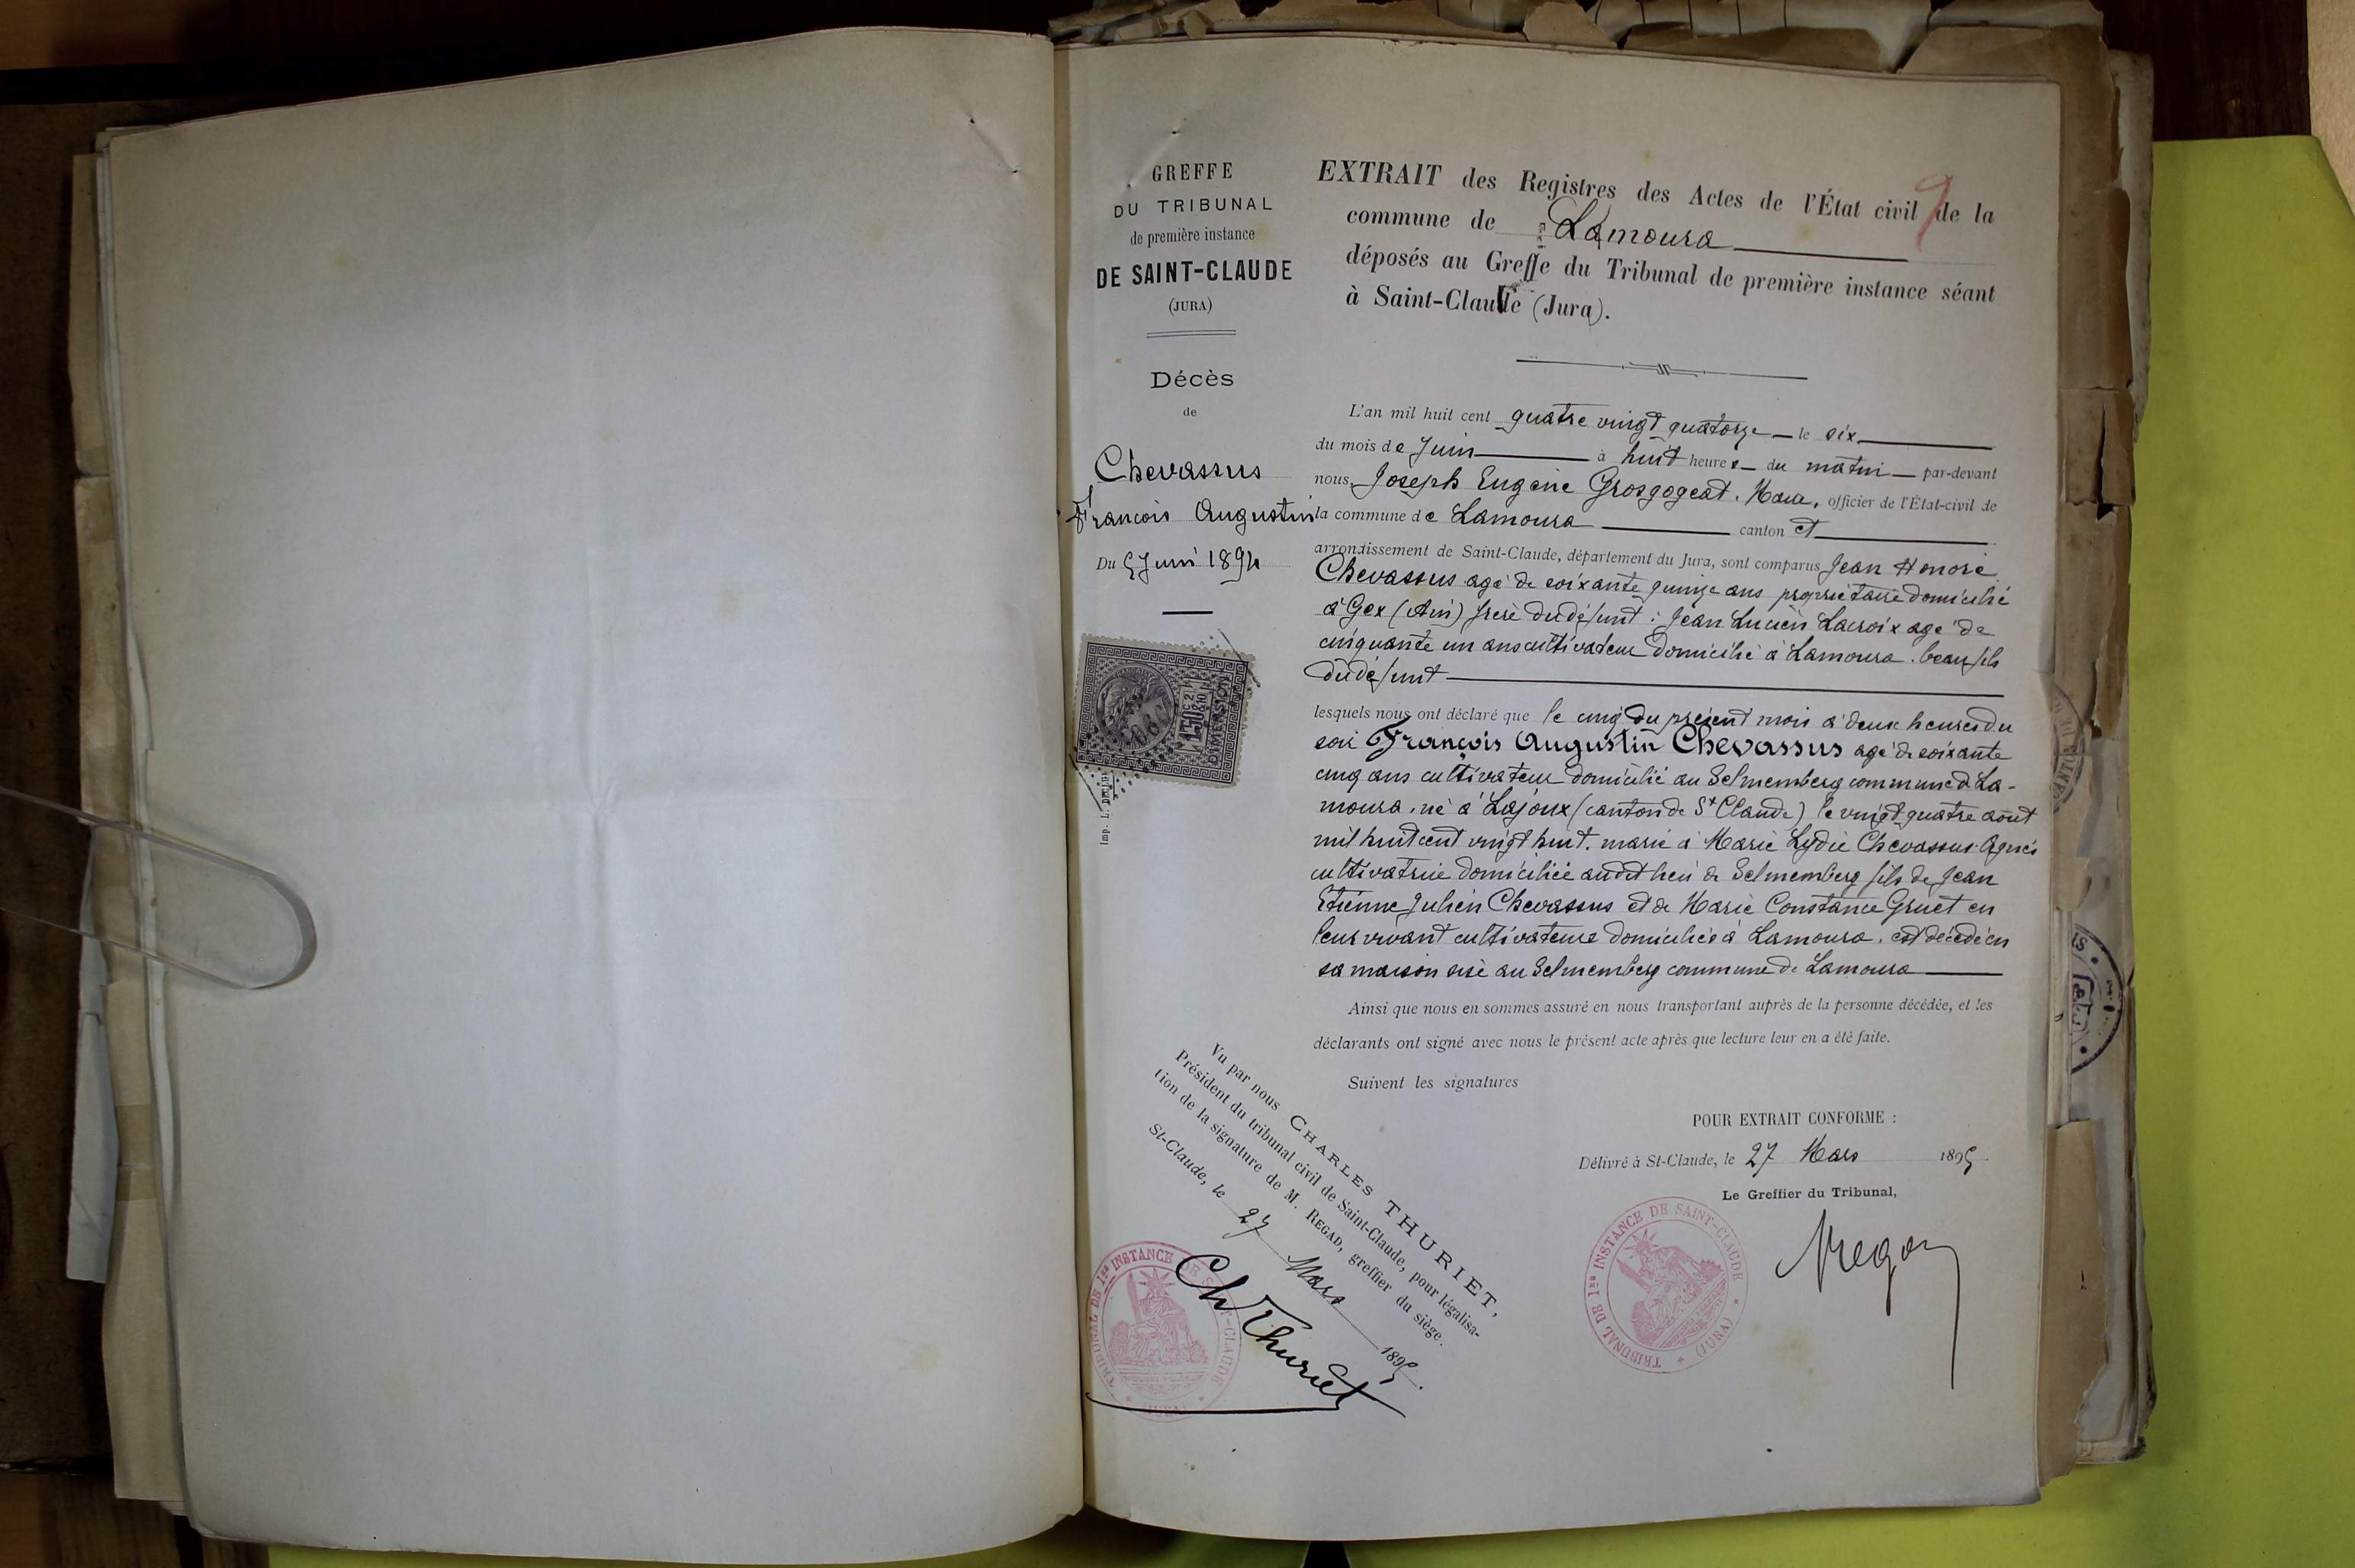 GREFFE
DU TRIBUNAL
de première instance
DE SAINT-CLAUDE
(JURA)
Décès
de
Chevassus
François Augustin
Du 5 Juin 1894
1F50C
2/10
DIMENSION
EXTRAIT des Registres des Actes de l'État civil de la
9
commune de Lamoura
déposés au Greffe du Tribunal de première instance séant
à Saint-Claude (Jura).
L'an mil huit cent quatre vingt quatorze le six
du mois de Juin à huit heures du matin par-devant
nous, Joseph Eugène Grosgogeat, Maire, officier de l'État-civil de
la commune de Lamoura canton et
arrondissement de Saint-Claude, département du Jura, sont comparus Jean Honoré
Chevassus agé de soixante quinze ans propriétaire domicilié
à Gex (Ain) frère du défunt : Jean Lucien Lacroix agé de
cinquante un ans cultivateur domicilié à Lamoura. beau fils
du défunt
lesquels nous ont déclaré que le cinq du présent mois à deux heures du
soir François Augustin Chevassus agé de soixante
cinq ans cultivateur domicilié au Selmemberg commune de La-
moura, né à Lajoux (canton de St Claude) le vingt quatre août
mil huit cent vingt huit. marié à Marie Lydie Chevassus Agnès
cultivatrice domiciliée audit lieu de Selmemberg fils de Jean
Etienne Julien Chevassus et de Marie Constance Gruet en
leur vivant cultivateurs domiciliés à Lamoura, est décédé en
sa maison sise au Selmemberg commune de Lamoura
Ainsi que nous en sommes assuré en nous transportant auprès de la personne décédée, et les
déclarants ont signé avec nous le présent acte après que lecture leur en a été faite.
Suivent les signatures
POUR EXTRAIT CONFORME :
Délivré à St-Claude, le 27 Mars 1895
Le Greffier du Tribunal,
Regad
TRIBUNAL DE 1RE INSTANCE DE SAINT-CLAUDE
(JURA)
Vu par nous CHARLES THURIET,
Président du tribunal civil de Saint-Claude, pour légalisa-
tion de la signature de M. REGAD, greffier du siège.
St-Claude, le 27 Mars 1895.
Ch Thuriet
TRIBUNAL DE 1RE INSTANCE DE SAINT-CLAUDE
(JURA)